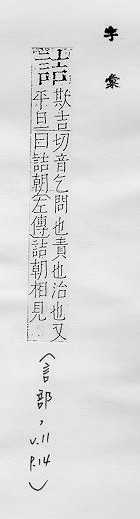 字彙
詰
欺吉切音乞問也責也治也又
平旦曰詰朝左傳詰朝相見
(言部, v.11 p.14)